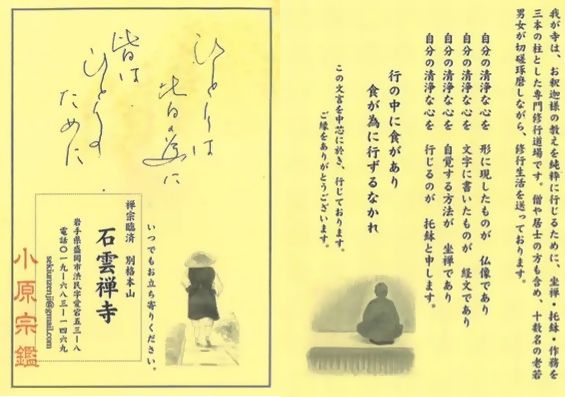 我が寺は、お釈迦様の教えを純粋に行じるために、坐禅・托鉢・作務を
三本の柱とした専門修行道場です。僧や居士の方も含め、十数名の老若
男女が切磋琢磨しながら、修行生活を送っております。
自分の清浄な心を 形に現したものが 仏像であり
自分の清浄な心を 文字に書いたものが 経文であり
自分の清浄な心を 自覚する方法が 坐禅であり
自分の清浄な心を 行じるのが 托鉢と申します。
行の中に食があり
食が為に行ずるなかれ
この文言を中芯に於き、行じております。
ご縁をありがとうございます。
ひとりは
皆の為に
皆は
ひとりの
ために
いつでもお立ち寄りください。
禅宗臨済 別格本山
石雲禅寺
岩手県盛岡市渋民字愛宕五三-八
電話〇一九-六八三-一四六九
sekiunzenji@gmail.com
小原宗鑑